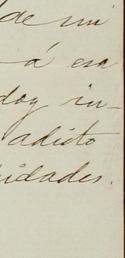 de mi
á esa
doy in-
adicto
idades.